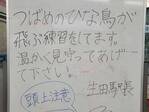 つばめのひな鳥が
飛ぶ練習をしてます。
温かく見守ってあげ…
て下さい。
生田駅長
頭上注意